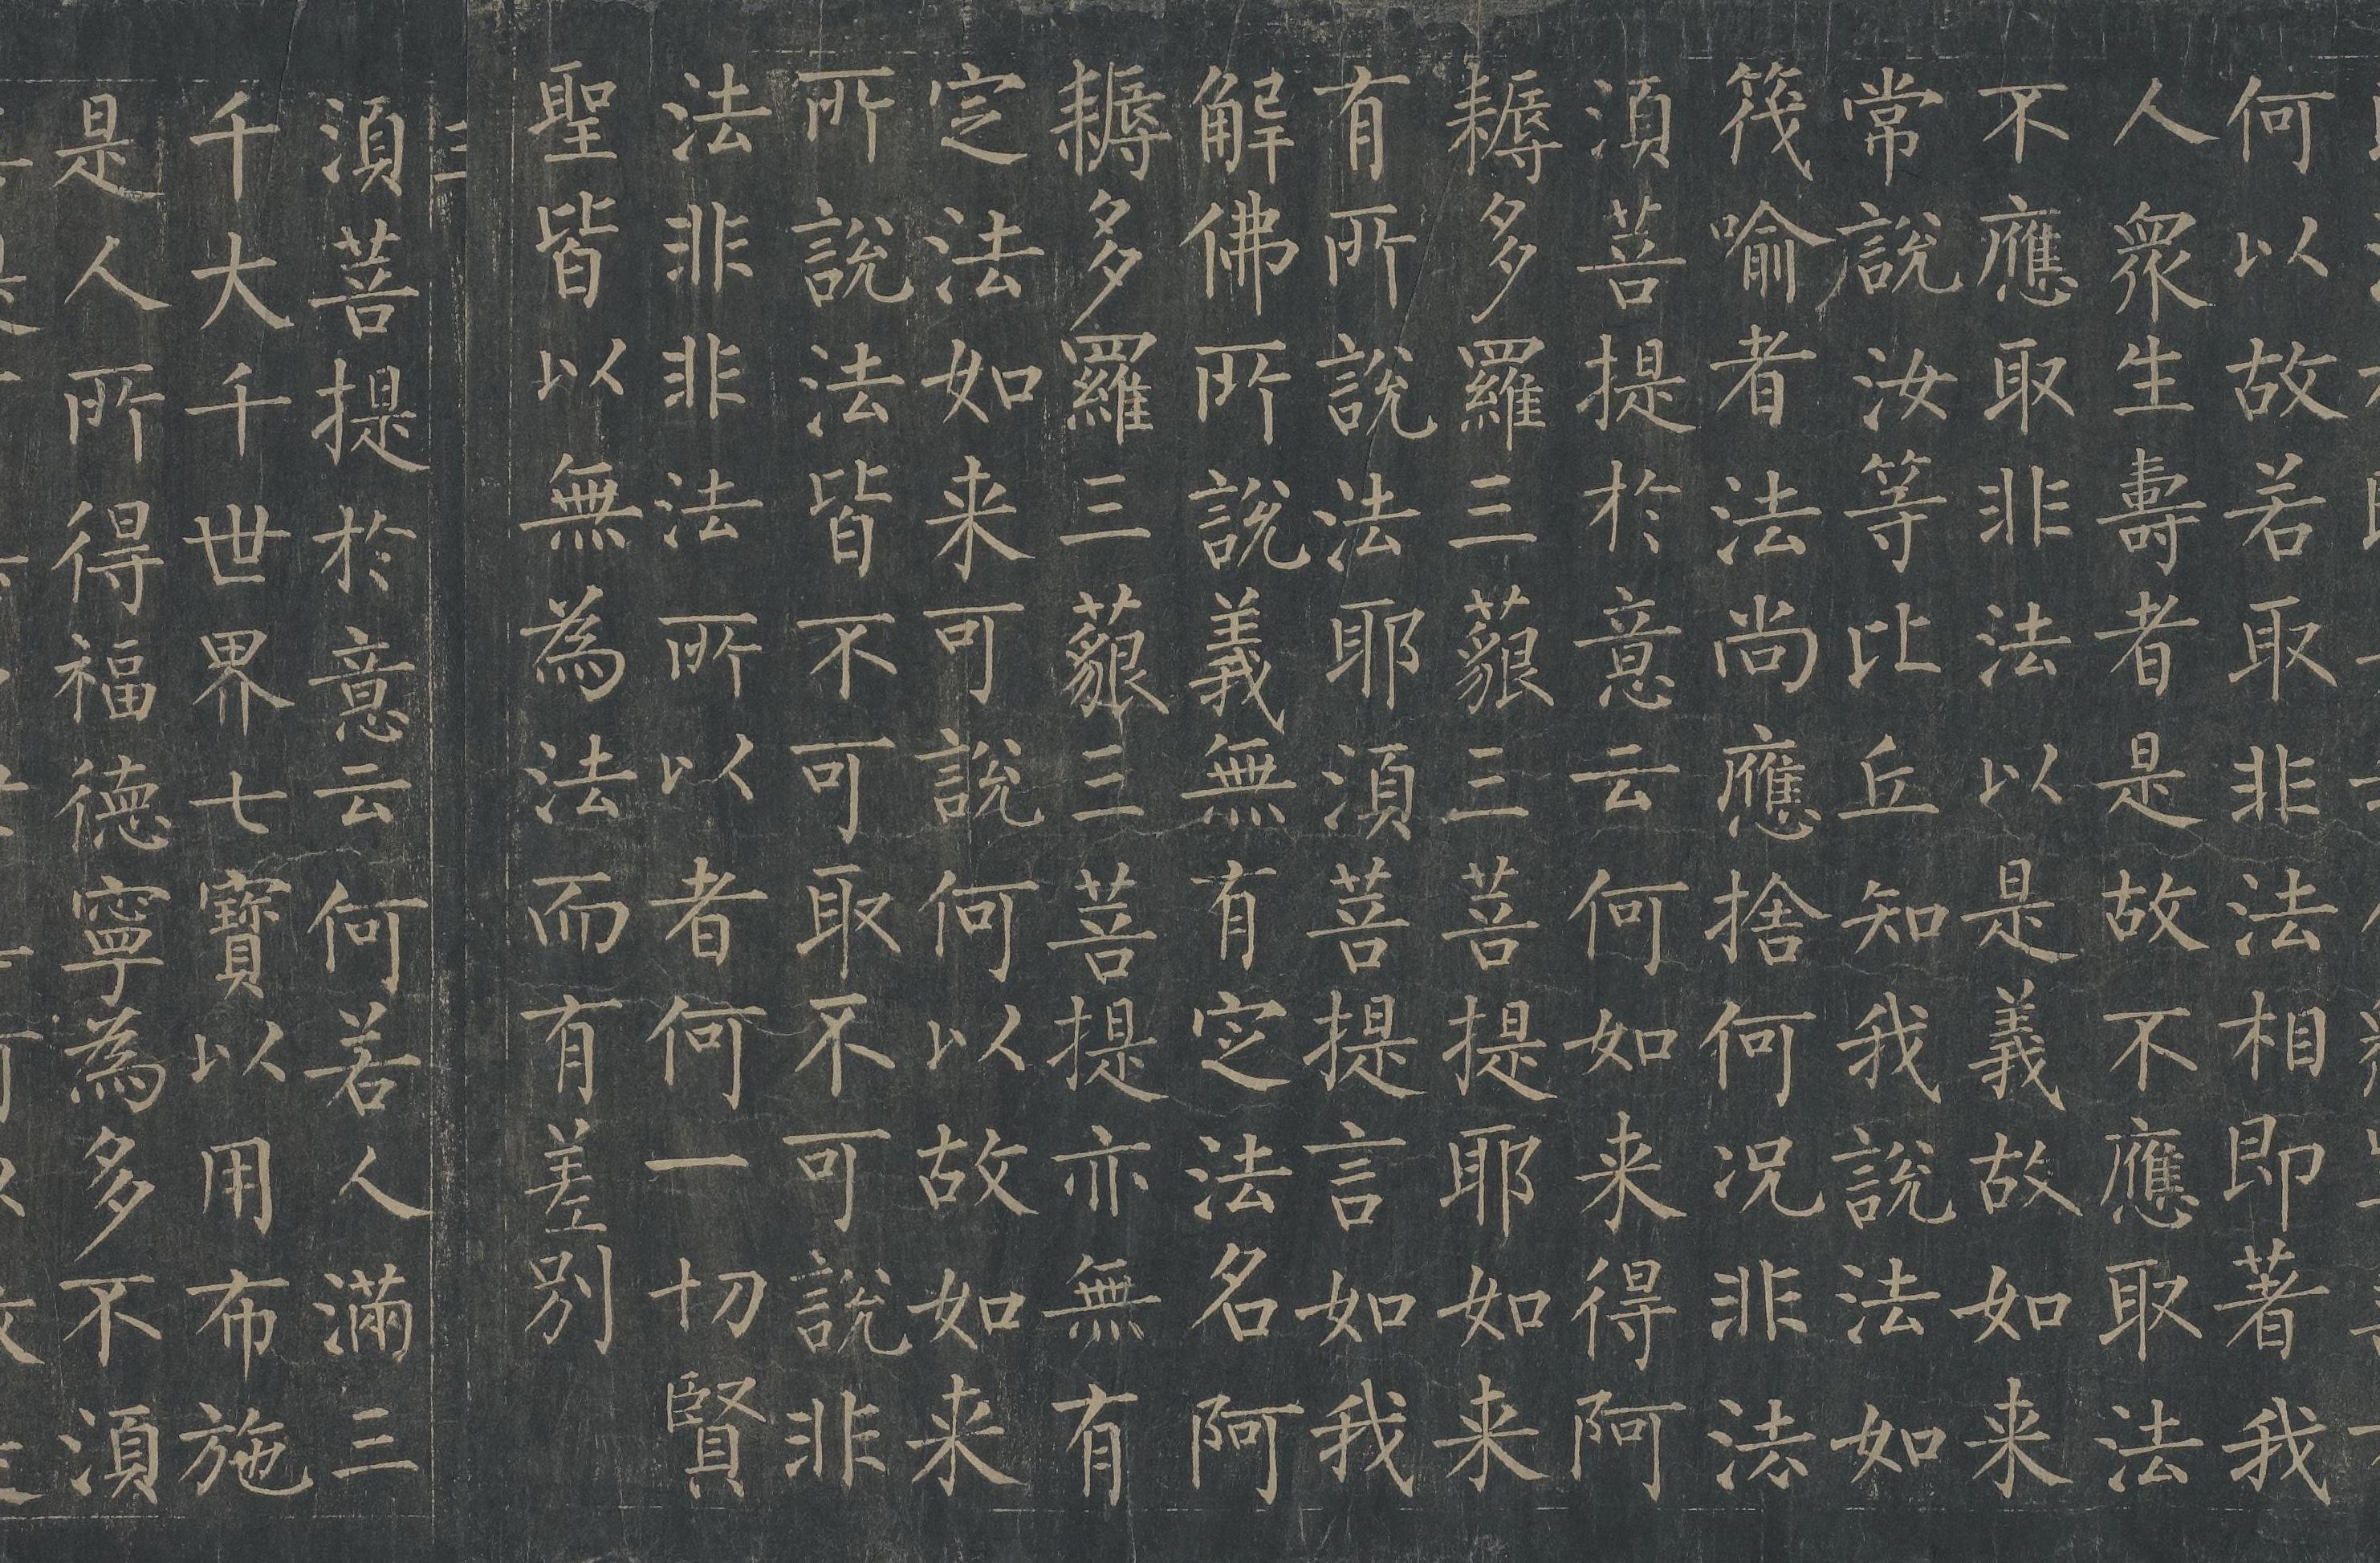 何以故若取非法相即著我
人衆生壽者是故不應取法
不應取非法以是義故如来
常說汝等比丘知我說法如
筏喻者法尚應捨何况非法
須菩提於意云何如来得阿
耨多羅三藐三菩提耶如来
有所說法耶須菩提言如我
解佛所說義無有定法名阿
耨多羅三藐三菩提亦無有
定法如来可說何以故如来
所說法皆不可取不可說非
法非非法所以者何一切賢
聖皆以無為法而有差別
三
須菩提於意云何若人滿三
千大千世界七寶以用布施
是人所得福德寧為多不須